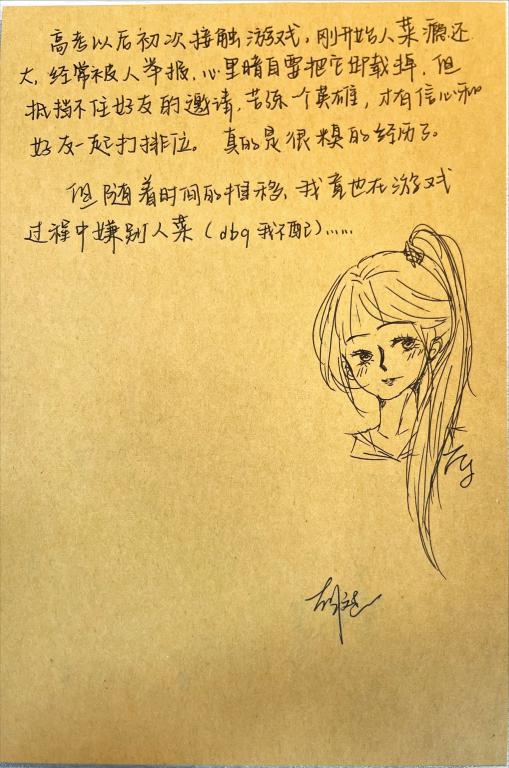 高考以后初次接触游戏，刚开始人菜瘾还
大，经常被人举报，心里暗自要把它卸载掉，但
抵挡不住好友的邀请，苦练一个英雄，才有信心和
好友一起打排位。真的是很糗的经历了。
但随着时间的推移，我竟也在游戏
过程中嫌别人菜（dbq 我不配）……